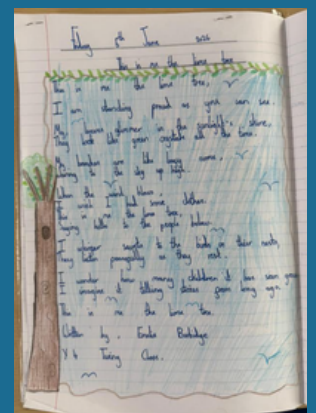 Friday 5th June 2026
This is me the lime tree
This is me the lime tree,
I am standing proud as you can see.
My leaves glimmer in the sunlight's shine,
They look like green crystals all the time.
My branches are like long arms,
to the sky up high.
When the wind blows,
I wish I had some clothes.
This is me the lime tree,
Saying hello to the people below.
I whisper secrets to the birds in their nests,
They listen peacefully as they rest.
I wonder how many children it has seen grow
I imagine it telling stories from long ago.
This is me the lime tree.
Written by,
Y4 Class.